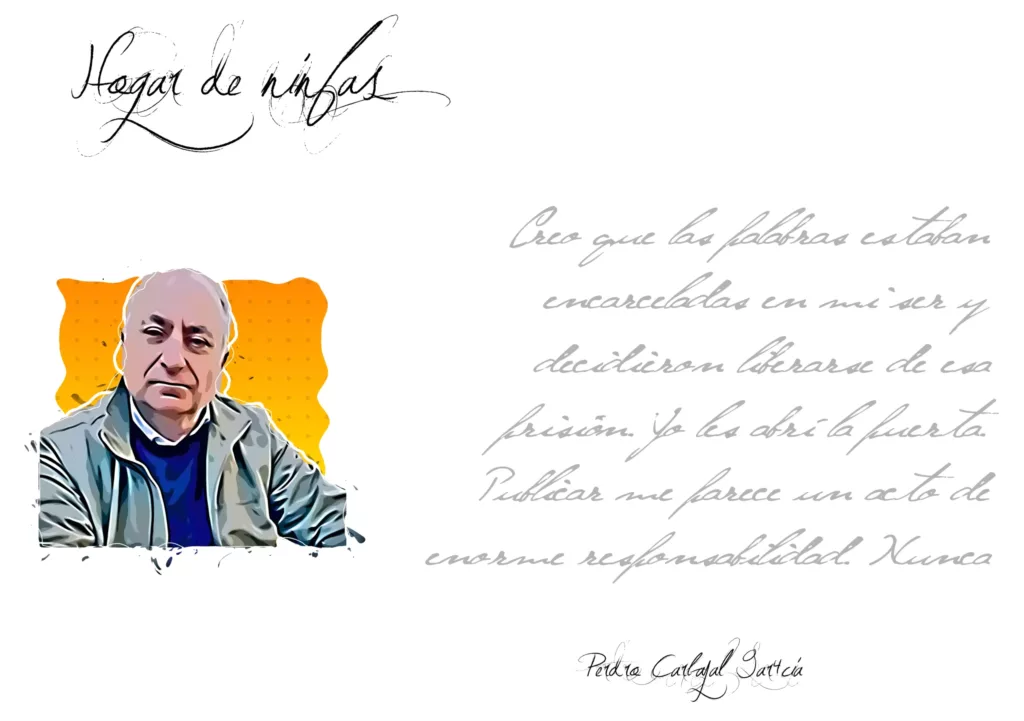 Hogar de ninfas
Creo que las palabras estaban
encarceladas en mi ser y
decidieron liberarse de esa
prisión. Yo les abrí la puerta.
Publicar me parece un acto de
enorme responsabilidad. Nunca
Perdro Carbajal Gartcía